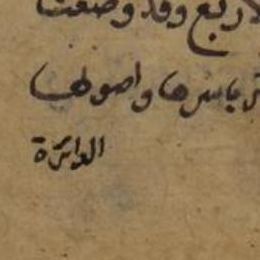 الاربع وقد وضعت
باسرها واصولها
الدائرة